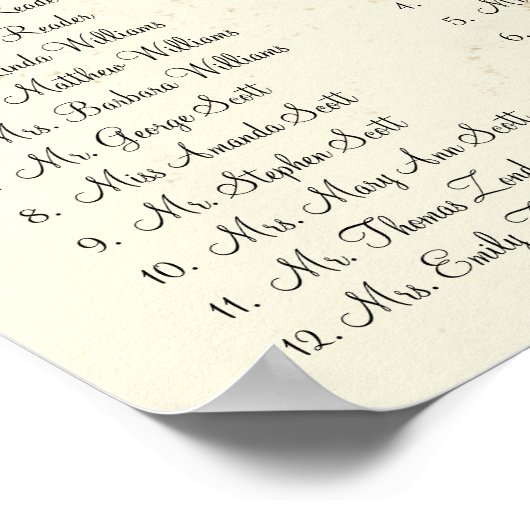 Reader
Reader
Williams
Matthew Williams
Mrs. Barbara Williams
Mr. George Scott
8. Miss Amanda Scott
9. Mr. Stephen Scott
10. Mrs. Mary Ann Scott
11. Mr. Thomas
12. Mrs. Emily
4.
5.
6.